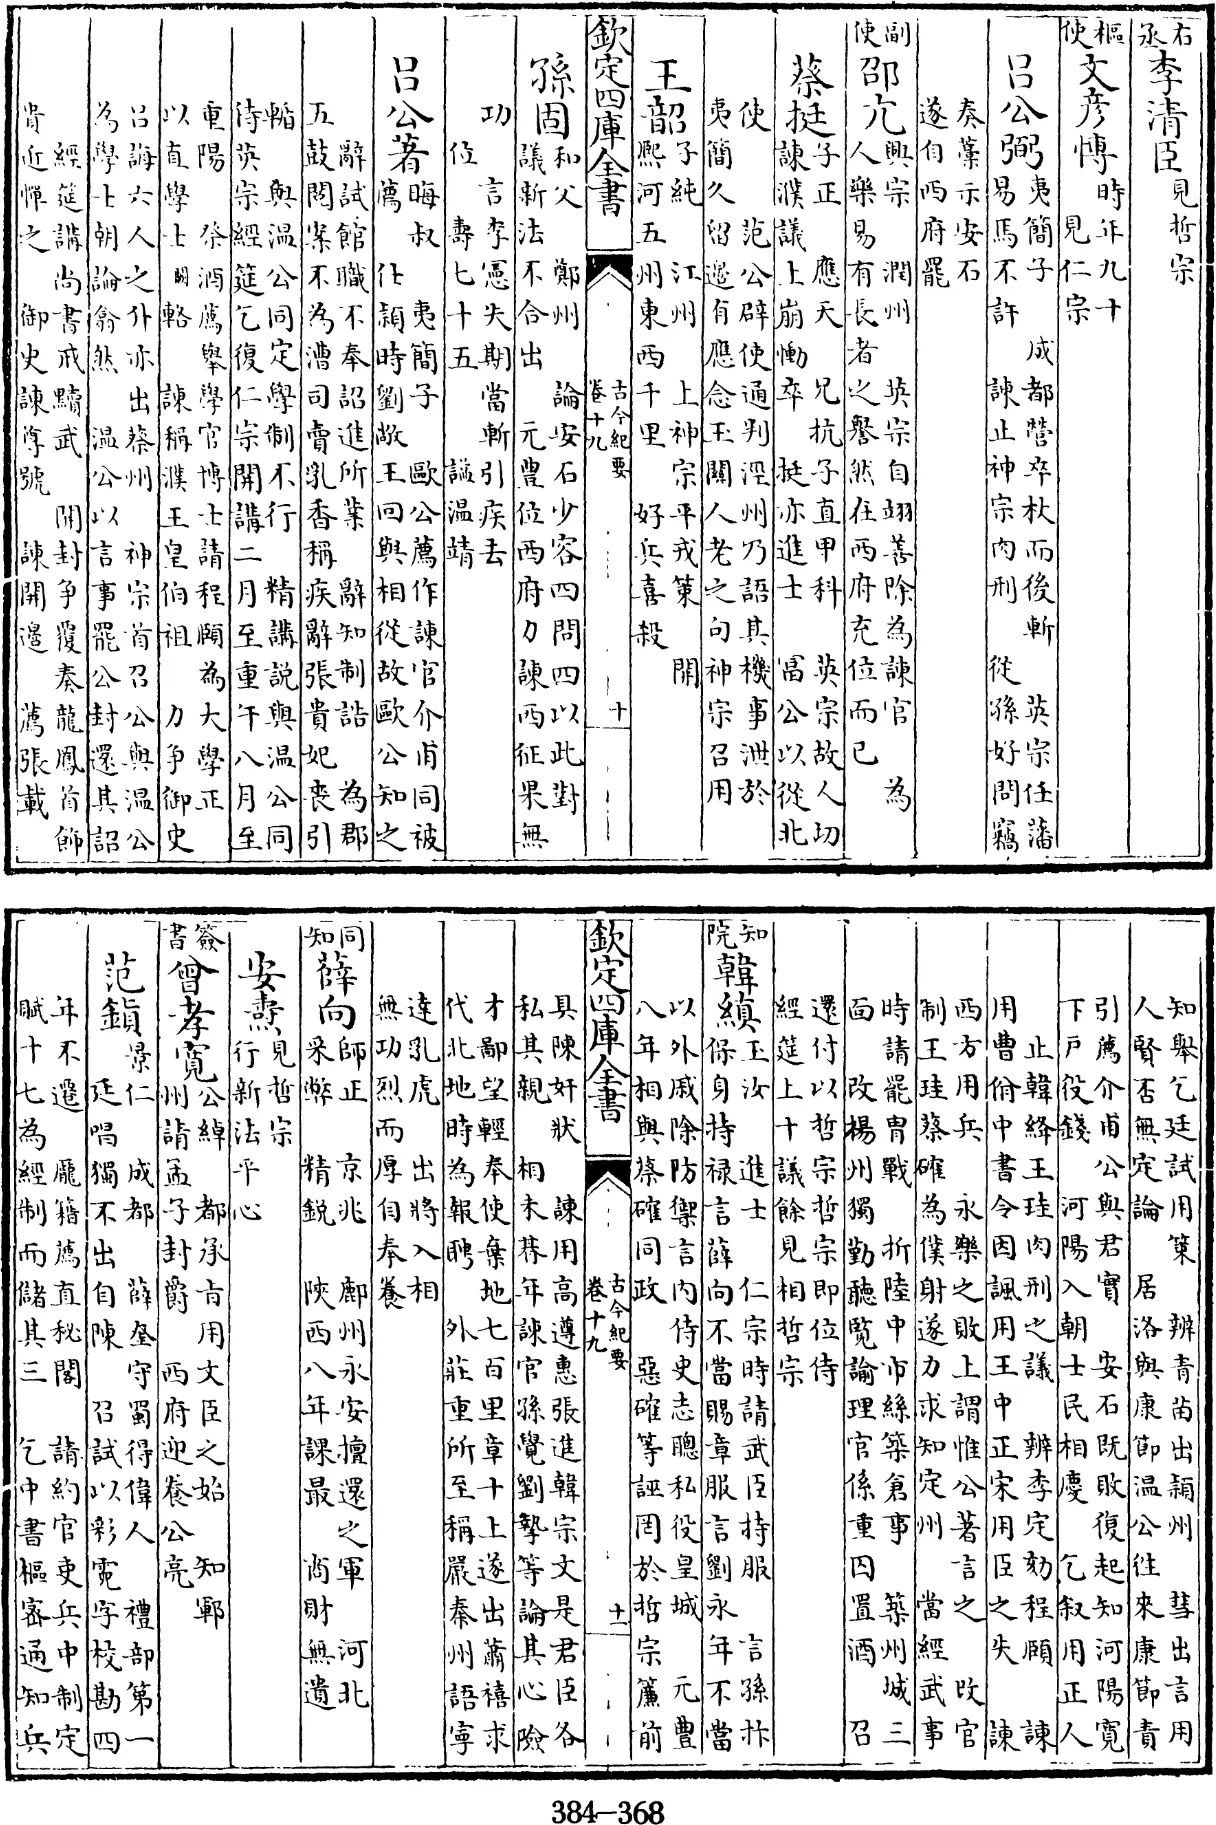 右丞李清臣見哲宗
樞使文彦博時年九十
見仁宗
呂公弼夷簡子 成都營卒杖而後斬 英宗任藩
易馬不許 諫止神宗肉刑 從孫好問竊
奏藁示安石
遂自西府罷
副使邵亢興宗 潤州 英宗自翊善除為諫官 為
人樂易有長者之譽然在西府充位而已
蔡挺子正 應天 兄抗子直甲科 英宗故人切
諫濮議上崩慟卒 挺亦進士 富公以從北
使 范公辟使通判涇州乃語其機事泄於
夷簡久留邊有應念玉關人老之句神宗召用
王韶子純 江州 上神宗平戎策 開
熙河五州東西千里 好兵喜殺
欽定四庫全書
古今紀要
卷十九
十
孫固和父 鄭州 論安石少容四問四以此對
議新法不合出 元豊位西府力諫西征果無
功 言李憲失期當斬引疾去
位 壽七十五 謚温靖
呂公著晦叔 夷簡子 歐公薦作諫官介甫同被
薦 仕潁時劉敞王回與相從故歐公知之
辭試館職不奉詔進所業 辭知制誥 為郡
五鼓閲案不為漕司賣乳香稱疾辭張貴妃喪引
輴 與温公同定學制不行 精講説與温公同
侍英宗經筵乞復仁宗開講二月至重午八月至
重陽 祭酒薦舉學官博士請程頤為大學正
以直學士 輅 諫稱濮王皇伯祖 力爭御史
呂誨六人之 亦出蔡州 神宗首召公與温公
為學士朝論翕然 温公以言事罷公封還其詔
經筵講尚書戒黷武 開封争覆奏龍鳳首飾
貴近憚之 御史諫尊號 諫開邊 薦張載
知舉乞廷試用策 辨青苗出潁州 彗出言用
人賢否無定論 居洛與康節温公往來康節責
引薦介甫公與君實 安石既敗復起知河陽寛
下戸役錢 河陽入朝士民相慶 乞叙用正人
止韓絳王珪肉刑之議 辨李定劾程頤 諫
用曹佾中書令因諷用王中正宋用臣之失 諫
西方用兵 永樂之敗上謂惟公著言之 改官
制王珪蔡確為僕射遂力求知定州 當經武事
時請罷冑戰 折陸中巿絲築倉事 築州城三
面 改楊州獨勤聽覽諭理官係重囚置酒 召
還付以哲宗哲宗即位侍
經筵上十議餘見相哲宗
知院韓縝玉汝 進士 仁宗時請武臣持服 言孫抃
保身持禄言薛向不當賜章服言劉永年不當
以外戚除防禦言内侍史志聰私役皇城 元豊
八年相與蔡確同政 惡確等誣罔於哲宗簾前
欽定四庫全書
古今紀要
卷十九
十一
具陳奸狀 諫用高遵惠張進韓宗文是君臣各
私其親 相未朞年諫官孫覺劉摯等論其心險
才鄙望輕奉使棄地七百里章十上遂出蕭禧求
代北地時為報聘 外莊重所至稱嚴秦州語寧
逹乳虎 出將入相
無功烈而厚自奉養
同知薛向師正 京兆 鄜州永安擅還之軍 河北
釆弊 精鋭 陜西八年課最 尚財無遺
安燾見哲宗
行新法平心
簽書曾孝寛公綽 都承㫖用文臣之始 知鄆
州請孟子封爵 西府迎養公亮
范鎮景仁 成都 薛奎守蜀得偉人 禮部第一
廷唱獨不出自陳 召試以彩霓字校勘四
年不遷 龐籍薦直秘閣 請約官吏兵中制定
賦十七為經制而儲其三 乞中書樞密通知兵
384—368